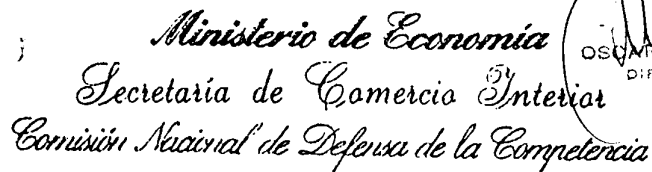 Ministerio de Economía
Secretaría de Comercio Interior
Comisión Nacional de Defensa de la Competencia